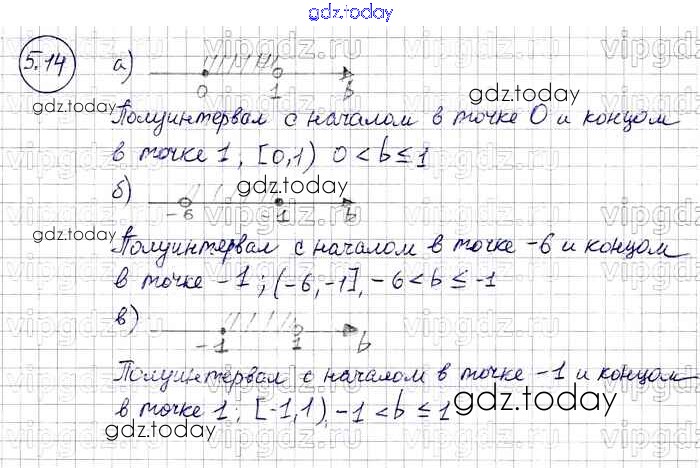 gdz.today
5.14 а)
0 1 b
gdz.today
gdz.today
Полуинтервал с началом в точке 0 и концом
в точке 1, [0,1) 0 < b ≤ 1
gdz.today
б)
-6 1 b
gdz.today
Полуинтервал с началом в точке -6 и концом
в точке -1; (-6,-1], -6 < b ≤ -1
в)
-1 1 b
Полуинтервал с началом в точке -1 и концом
в точке 1; [-1,1), -1 < b ≤ 1
gdz.today
gdz.today
vipgdz.ru